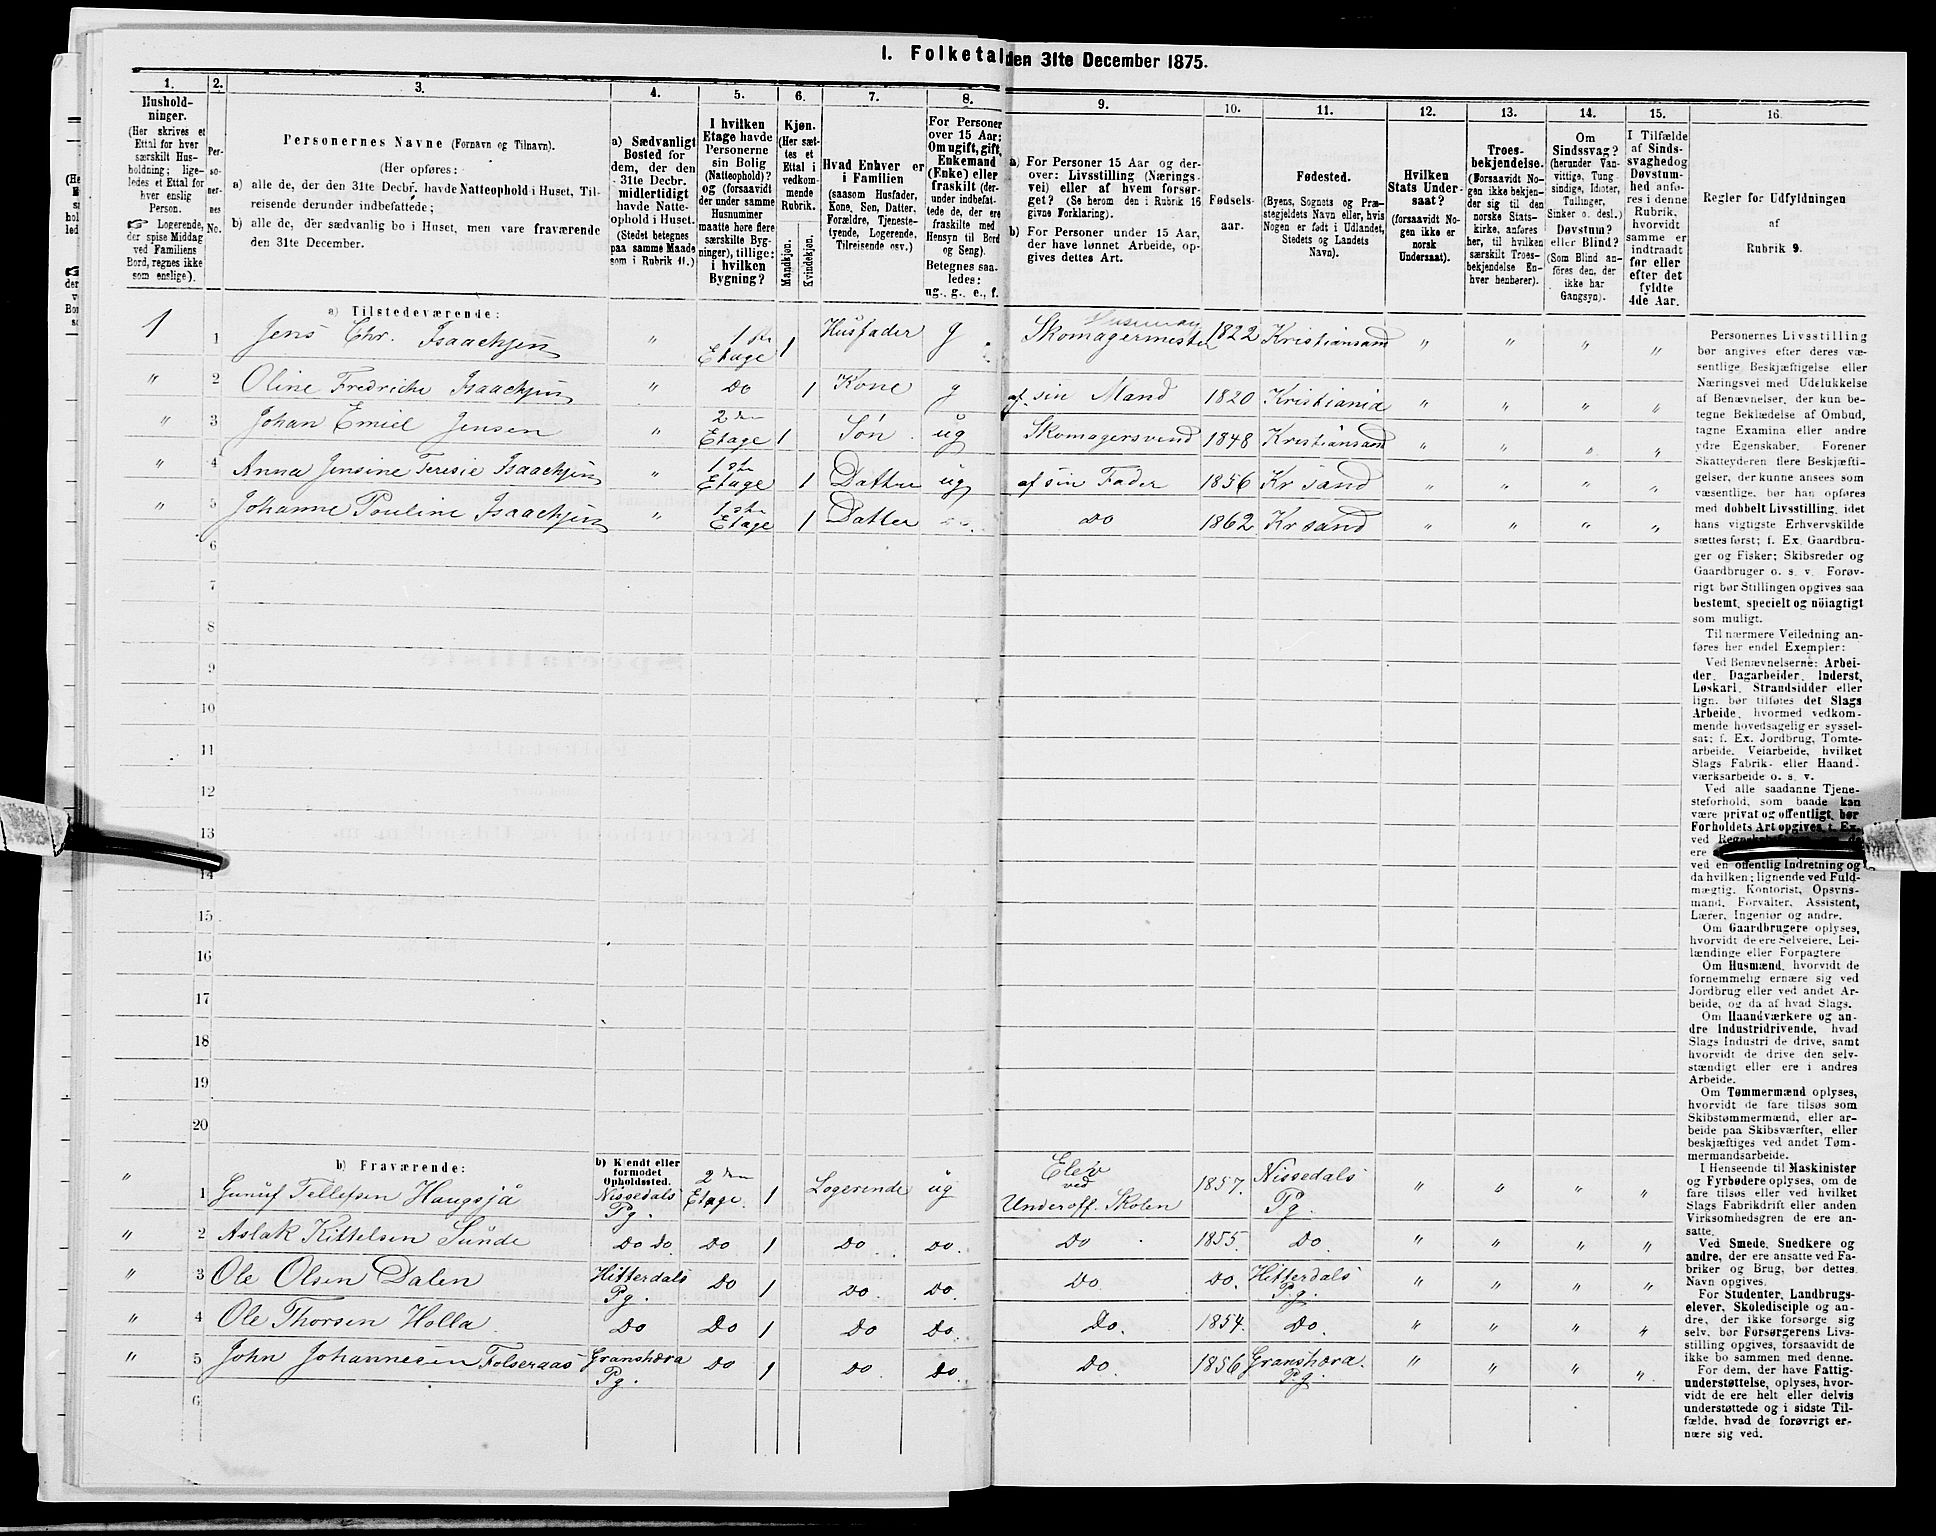 I. Folketal den 31te December 1875.
1. 2. 3. 4. 5. 6. 7. 8. 9. 10. 11. 12. 13. 14. 15. 16.
Hushold-
ninger.
(Her skrives et
Ettal for hver
særskilt Hus-
holdning; lige-
ledes et Ettal for
hver enslig
Person.
☞ Logerende,
der spise Middag
ved Familiens
Bord, regnes ikke
som enslige).
Per-
so-
ner-
nes
No.
Personernes Navne (Fornavn og Tilnavn).
(Her opføres:
a) alle de, der den 31te Decbr. havde Natteophold i Huset, Til-
reisende derunder indbefattede;
b) alle de, der sædvanlig bo i Huset, men vare fraværende
den 31te December.
a) Sædvanligt
Bosted for
dem, der den
31te Decbr.
midlertidigt
havde Natte-
ophold i Huset.
(Stedet betegnes
paa samme Maade
som i Rubrik 11.)
I hvilken
Etage havde
Personerne
sin Bolig
(Natteophold)?
og (forsaavidt
der under samme
Husnummer
maatte høre flere
særskilte Byg-
ninger), tillige:
i hvilken
Bygning?
Kjøn.
(Her sæt-
tes et
Ettal i
vedkom-
mende
Rubrik.
Mandkjøn.
Kvindekjøn.
Hvad Enhver er
i Familien
(saasom Husfader,
Kone, Søn, Datter,
Forældre, Tjeneste-
tyende, Logerende,
Tilreisende osv.)
For Personer
over 15 Aar:
Om ugift, gift,
Enkemand
(Enke) eller
fraskilt (der-
under indbefat-
tede de, der ere
fraskilte med
Hensyn til Bord
og Seng).
Betegnes saa-
ledes:
ug., g., e., f.
a) For Personer 15 Aar og der-
over: Livsstilling (Nærings-
vei) eller af hvem forsør-
get? (Se herom den i Rubrik 16
givne Forklaring).
b) For Personer under 15 Aar,
der have lønnet Arbeide, op-
gives dettes Art.
Fødsels-
aar.
Fødested.
(Byens, Sognets og Præ-
stegjeldets Navn eller, hvis
Nogen er født i Udlandet,
Stedets og Landets
Navn).
Hvilken
Stats Under-
saat?
(forsaavidt No-
gen ikke er
norsk
Undersaat).
Troes-
bekjendelse.
(Forsaavidt No-
gen ikke bekjen-
der sig til den
norske Stats-
kirke, anføres
her, til hvilken
særskilt Troes-
bekjendelse En-
hver henhører).
Om
Sindssvag?
(herunder Van-
vittige, Tung-
sindige, Idioter,
Tullinger,
Sinker o. desl.)
Døvstum?
eller Blind?
(Som Blind an-
føres den, der
ikke har
Gangsyn).
I Tilfælde
af Sinds-
svaghed og
Døvstum-
hed anfø-
res i denne
Rubrik,
hvorvidt
samme er
indtraadt
før eller
efter det
fyldte
4de Aar.
Regler for Udfyldningen
af
Rubrik 9.
a) Tilstedeværende:
1 1 Jens Chr. Isaachsen " 1ste Etage 1 Husfader g Skomagermester 1822 Kristiansand " " " "
" 2 Oline Fredriche Isaachsen " Do 1 Kone g af sin Mand 1820 Kristiania " " " "
" 3 Johan Emiel Jensen " 2den Etage 1 Søn. ug Skomagersvend 1848 Kristiansand " " " "
" 4 Anna Jensine Teresie Isaachsen " 1ste Etage 1 Datter ug af sin Fader 1856 Kr sand " " " "
" 5 Johanne Pouline Isaachsen " 1ste Etage 1 Datter Do 1862 Kr sand " " " "
6
7
8
9
10
11
12
13
14
15
16
17
18
19
20
b) Fraværende:
b) Kjendt eller
formodet
Opholdssted.
" 1 Gunuf Tellefsen Haugsjå Nissedals Pg. 2den Etage. 1 Logerende ug Elev ved Underoff. Skolen 1857. Nissedals Pg. " " " "
" 2 Aslak Kittelsen Sunde Do Do. Do 1 Do. Do. Do 1855. Do. " " " "
" 3 Ole Olsen Dalen Hitterdals Pg. Do 1 Do. Do. Do. Do. Hitterdals Pg. " " " "
" 4 Ole Thorsen Holla. Do Do 1 Do Do. Do. 1854. Do. " " " "
" 5 John Johannesen Folseraas Granshæra Pg. Do 1 Do. Do. Do. 1856 Granshæra. Pg. " " " "
6
Personernes Livsstilling
bør angives efter deres væ-
sentlige Beskjæftigelse eller
Næringsvei med Udelukkelse
af Benævnelser, der kun be-
tegne Beklædelse af Ombud,
tagne Examina eller andre
ydre Egenskaber. Forener
Skatteyderen flere Beskjæfti-
gelser, der kunne ansees som
væsentlige, bør han opføres
med dobbelt Livsstilling, idet
hans vigtigste Erhvervskilde
sættes først; f. Ex. Gaardbru-
ger og Fisker; Skibsreder og
Gaardbruger o. s. v. Forøv-
rigt bør Stillingen opgives saa
bestemt, specielt og nöiagtigt
som muligt.
Til nærmere Veiledning an-
føres her endel Exempler:
Ved Benævnelserne: Arbei-
der, Dagarbeider, Inderst,
Løskarl, Strandsidder eller
lign. bør tilføies det Slags
Arbeide, hvormed vedkom-
mende hovedsagelig er syssel-
sat; f. Ex. Jordbrug, Tomte-
arbeide, Veiarbeide, hvilket
Slags Fabrik- eller Haand-
værksarbeide o. s. v.
Ved alle saadanne Tjene-
steforhold, som baade kan
være privat og offentligt, bør
Forholdets Art opgives, f. Ex.
ved
ere
ved en offentlig Indretning og
da hvilken; lignende ved Fuld-
mægtig, Kontorist, Opsyns-
mand, Forvalter, Assistent,
Lærer, Ingeniør og andre.
Om Gaardbrugere oplyses,
hvorvidt de ere Selveiere, Lei-
lændinge eller Forpagtere
Om Husmænd, hvorvidt de
fornemmelig ernære sig ved
Jordbrug eller ved andet Ar-
beide, og da af hvad Slags.
Om Haandværkere og an-
dre Industridrivende, hvad
Slags Industri de drive, samt
hvorvidt de drive den selv-
stændigt eller ere i andres
Arbeide.
Om Tømmermænd oplyses,
hvorvidt de fare tilsøs som
Skibstømmermænd, eller ar-
beide paa Skibsværfter, eller
beskjæftiges ved andet Tøm-
mermandsarbeide.
I Henseende til Maskinister
og Fyrbødere oplyses, om de
fare tilsøs eller ved hvilket
Slags Fabrikdrift eller anden
Virksomhedsgren de ere an-
satte.
Ved Smede, Snedkere og
andre, der ere ansatte ved Fa-
briker og Brug, bør dettes
Navn opgives.
For Studenter, Landbrugs-
elever, Skoledisciple og an-
dre, der ikke forsørge sig
selv, bør Forsørgerens Livs-
stilling opgives, forsaavidt de
ikke bo sammen med denne.
For dem, der have Fattig-
understøttelse, oplyses, hvor-
vidt de ere helt eller delvis
understøttede og i sidste Til-
fælde, hvad de forøvrigt er-
nære sig ved.